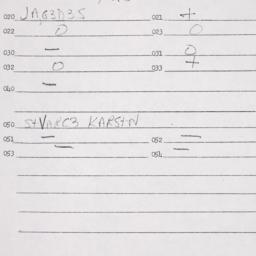 020 JAG3D35 021 +
022 0 023 0
030 — 031 0
032 0 033 +
040 —
050 StVARC3 KARStN
051 — 052 —
053 — 054 —